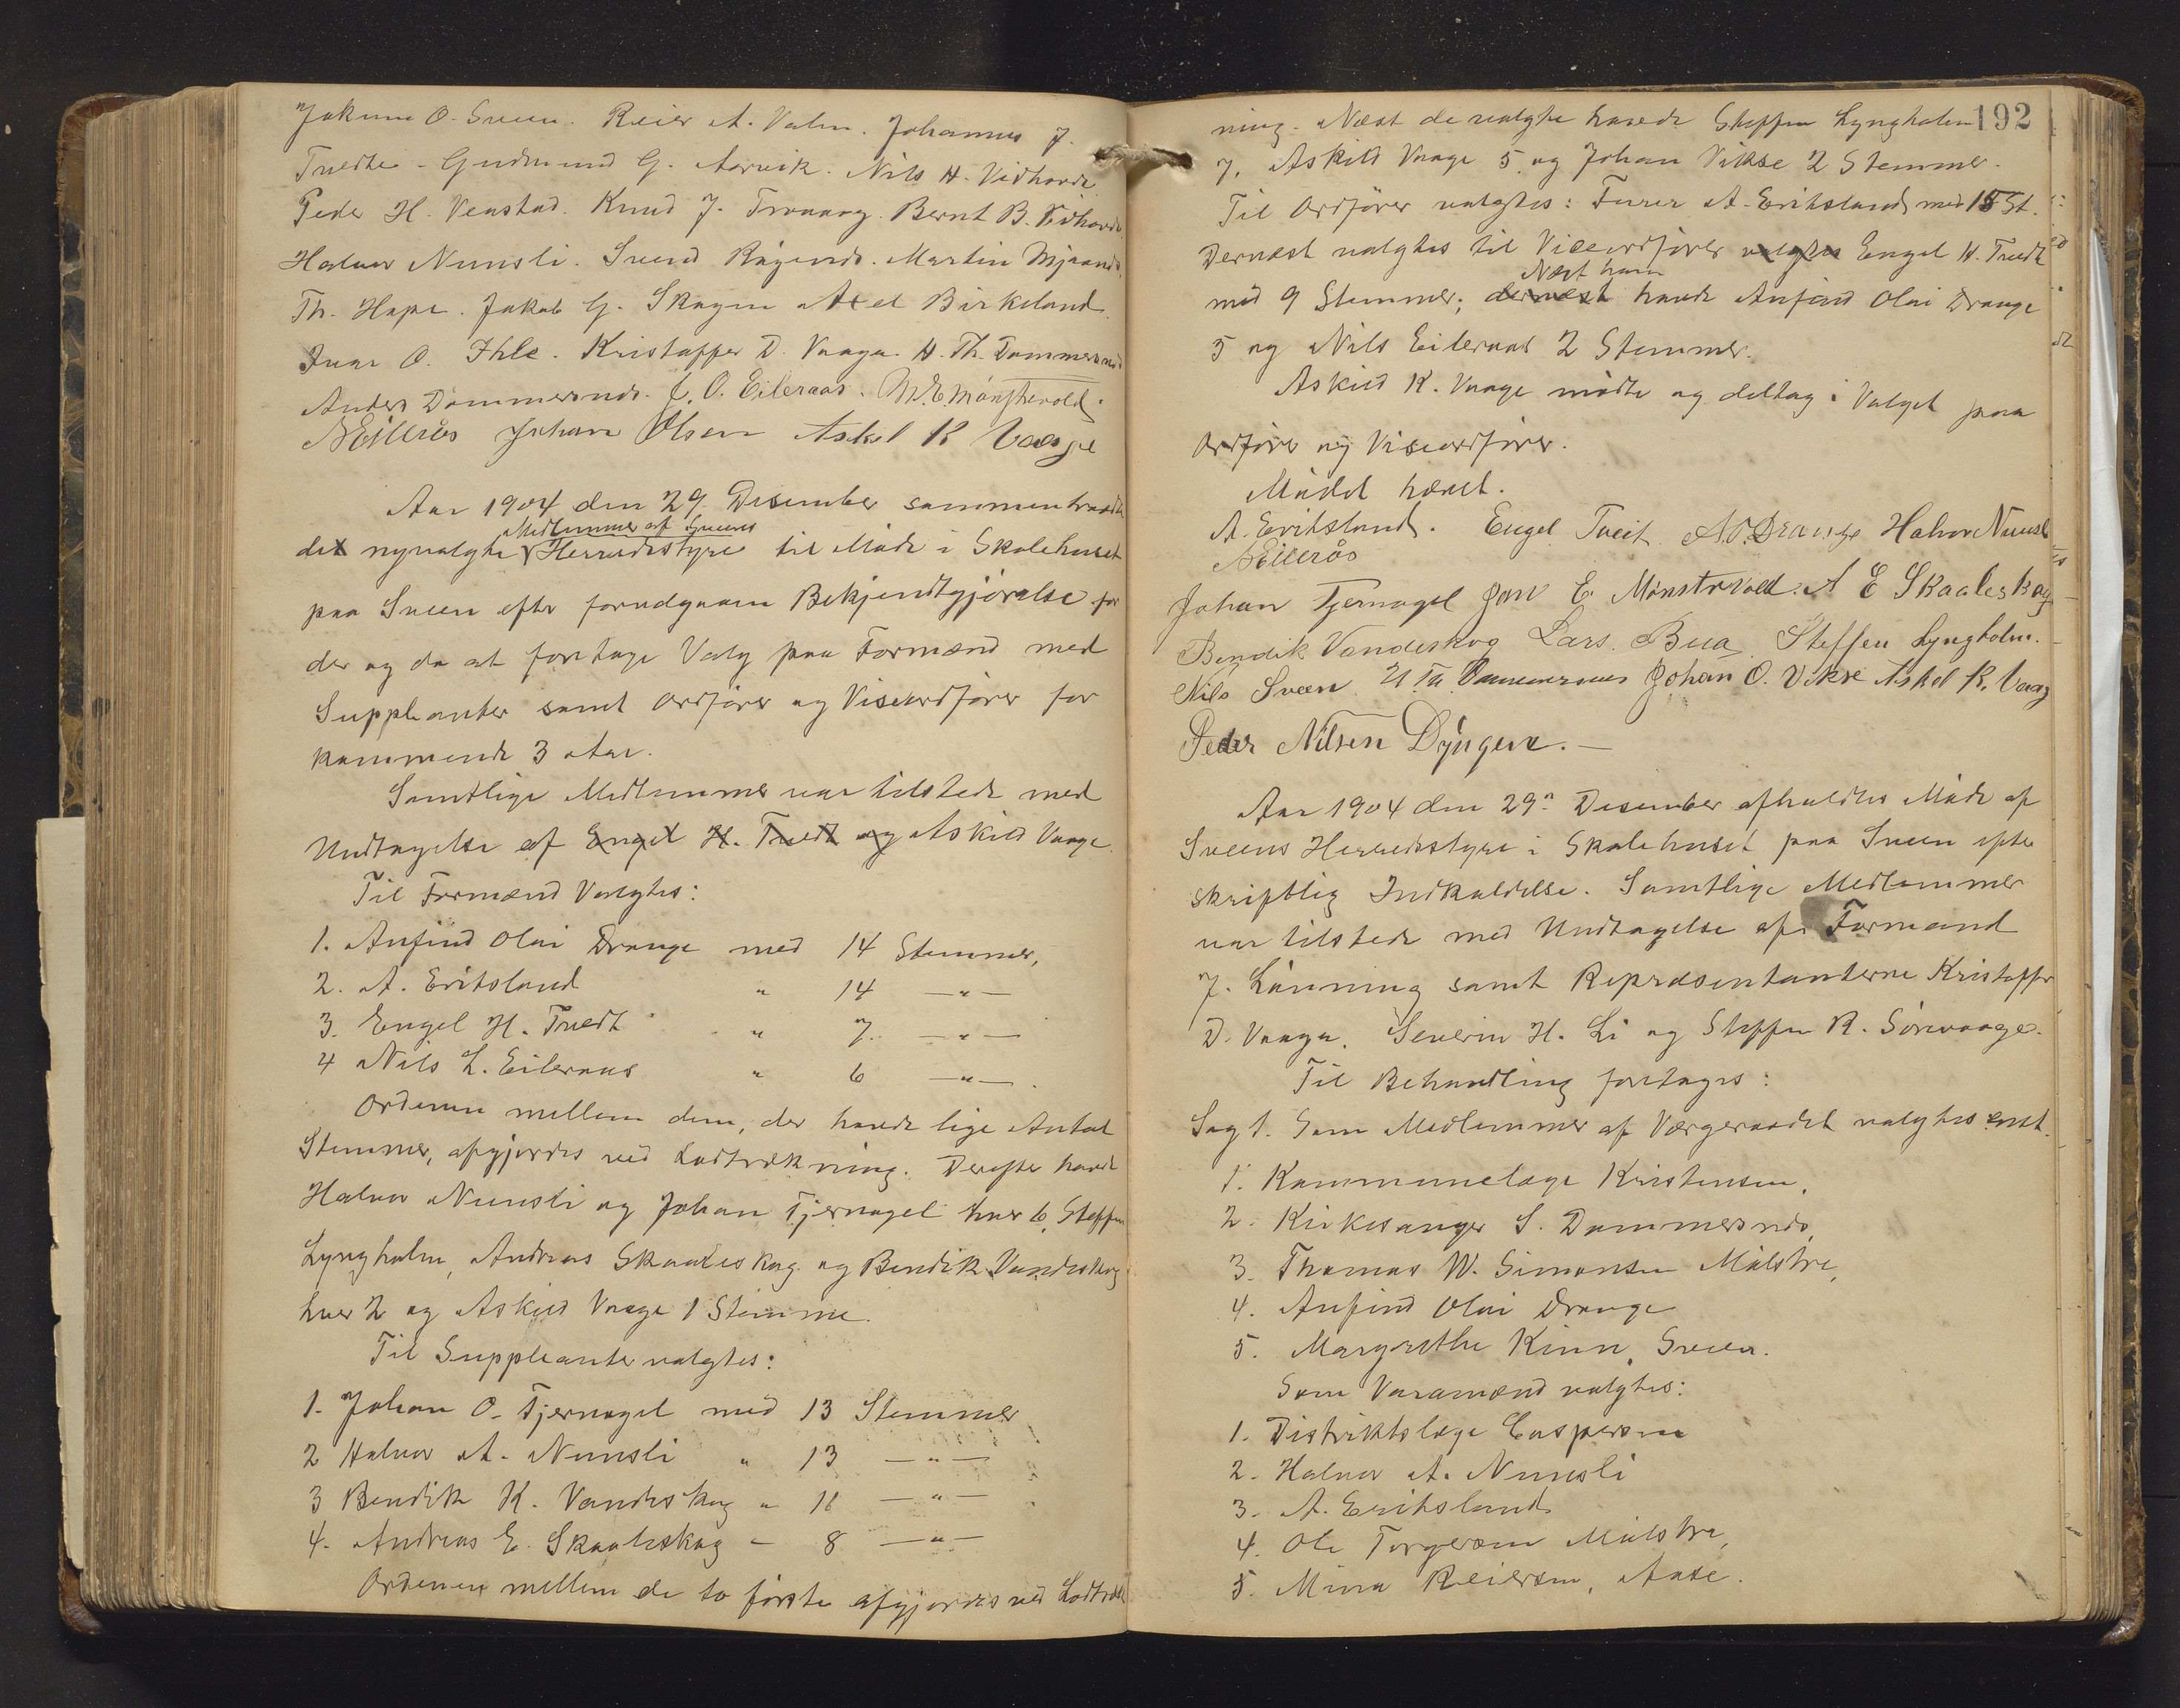 Jokum O. Sveen. Reier A. Valen. Johannes J.
Tvedte. Gudmund G. Aarvik. Nils H. Vidhovde
Peder H. Venstad. Knud J. Trovaag. Bernt B. Vidhovde
Halvor Nunsli. Svend Røgends. Martin Mjaanæs.
Th. Hope. Jakob G. Skogen Axel Birkeland.
Ivar O. Ihle. Kristoffer D. Vaaga. H. Th. Dommersnes
Anders Dommersnes. J. O. Eileraas. M. E. Mønstrevold.
NEilerås Johan Olsen Askel K Vaage
Aar 1904 den 29. Desember sammentraadte
det nyvalgte Medlemmer af Sveens Herredsstyre til Møde i Skolehuset
paa Sveen efter forudgaaen Bekjendtgjørelse for
der og da at foretage Valg paa Formænd med
Suppleanter samt Ordfører og Viseordfører for
kommende 3 Aar.
Samtlige Medlemmer var tilstede med
Undtagelse af Engel H. Tvedt og Askild Vaage.
Til Formænd Valgtes:
1. Anfind Olai Drange med 14 Stemmer,
2. A. Eritsland " 14 —"—
3. Engel H. Tvedt " 7. —"—
4 Nils L. Eileraas " 6 —"—.
Ordenen mellem dem, der havde lige Antal
Stemmer, afgjordes ved Lodtrækning. Derefter havde
Halvor Nunsli og Johan Tjernagel hver 6, Steffen
Lyngholm, Andreas Skaaleskog og Bendik Vandeskog
hver 2 og Askild Vaage 1 Stemme.
Til Suppleanter valgtes:
1. Johan O. Tjernagel med 13 Stemmer
2 Halvor A. Nunsli " 13 —"—
3 Bendik K. Vandeskog " 11 —"—
4. Andreas E. Skaaleskog - 8 —"—
Ordenen mellem de to første afgjordes ved Lodtræk
192
ning. Næst de valgte havde Steffen Lyngholm
7, Askild Vaage 5 og Johan Vikse 2 Stemmer.
Til Ordfører valgtes: A. Eritsland med 15 St.
Dernæst valgtes til Viseordfører valgtes Engel H. Tvedt
med 9 Stemmer; dernæst Næst ham havde Anfind Olai Drange
5 og Nils Eileraas 2 Stemmer.
Askild K. Vaage mødte og deltog i Valget paa
Ordfører og Viseordfører.
Mødet hævet.
A. Eritsland. Engel Tveit A.O.Drange Halvor Nunsli
NEilerås
Johan Tjernagel Jon E. Mønstrevold. A E Skaaleskog
Bendik Vandeskog Lars Bua. Steffen Lyngholm.
Nils Sveen H Th Dommersnes Johan O. Vikse Askel K. Vaag
Peder Nilsen Døngen. —
Aar 1904 den 29n Desember afholdtes Møde af
Sveens Herredsstyre i Skolehuset paa Sveen efter
skriftlig Indkaldelse. Samtlige Medlemmer
var tilstede med Undtagelse af Formand
J. Lønning samt Repræsentanterne Kristoffer
D. Vaaga, Severin H. Li og Steffen R. Sørvaage.
Til Behandling foretoges:
Sag 1. Som Medlemmer af Værgeraadet valgtes enst.
1. Kommunelæge Kristensen,
2. Kirkesanger S. Dommersnes,
3. Thomas W. Simonsen Mølstre,
4. Anfind Olai Drange
5. Margrethe Kinn, Sveen.
Som Varamænd valgtes:
1. Distriktslæge Caspersen
2. Halvor A. Nunsli
3. A. Eritsland
4. Ole Torgersen Mølstre,
5. Mina Reiersen, Aase.